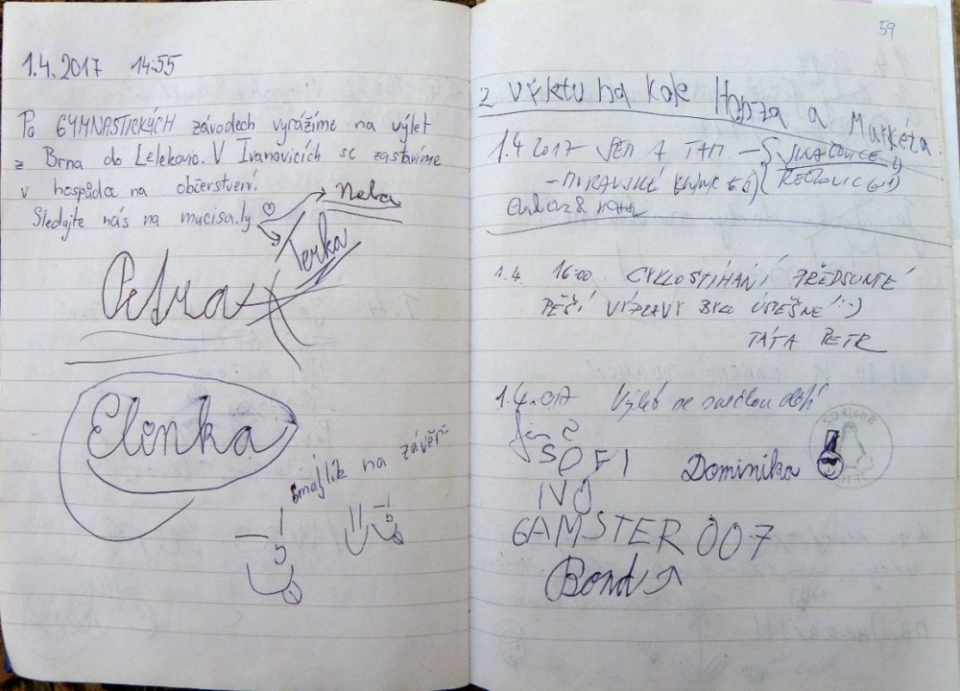 1.4.2017 14:55
Po GYMNASTICKÝCH závodech vyrážíme na výlet
z Brna do Lelekovic. V Ivanovicích se zastavíme
v hospůdce na občerstvení.
Sledujte nás na mucisa.ly
Nela
Terka
Petra
Elonka
smajlík na závěr:
59
z výletu na kole Honza a Markéta
1.4 2017 SEM A TAM - JINAČOVICE
- MORAVSKÉ KNÍNICE
1.4. 16:00 CYKLOSTÍHÁNÍ PŘEDSUNUTÉ
PĚŠÍ VÝPRAVY BYLO ÚSPĚŠNÉ :-)
TÁTA PETR
1.4.2017 Výlet se smečkou dětí
SOFI
Dominika
IVO
GAMSTER 007
Bond